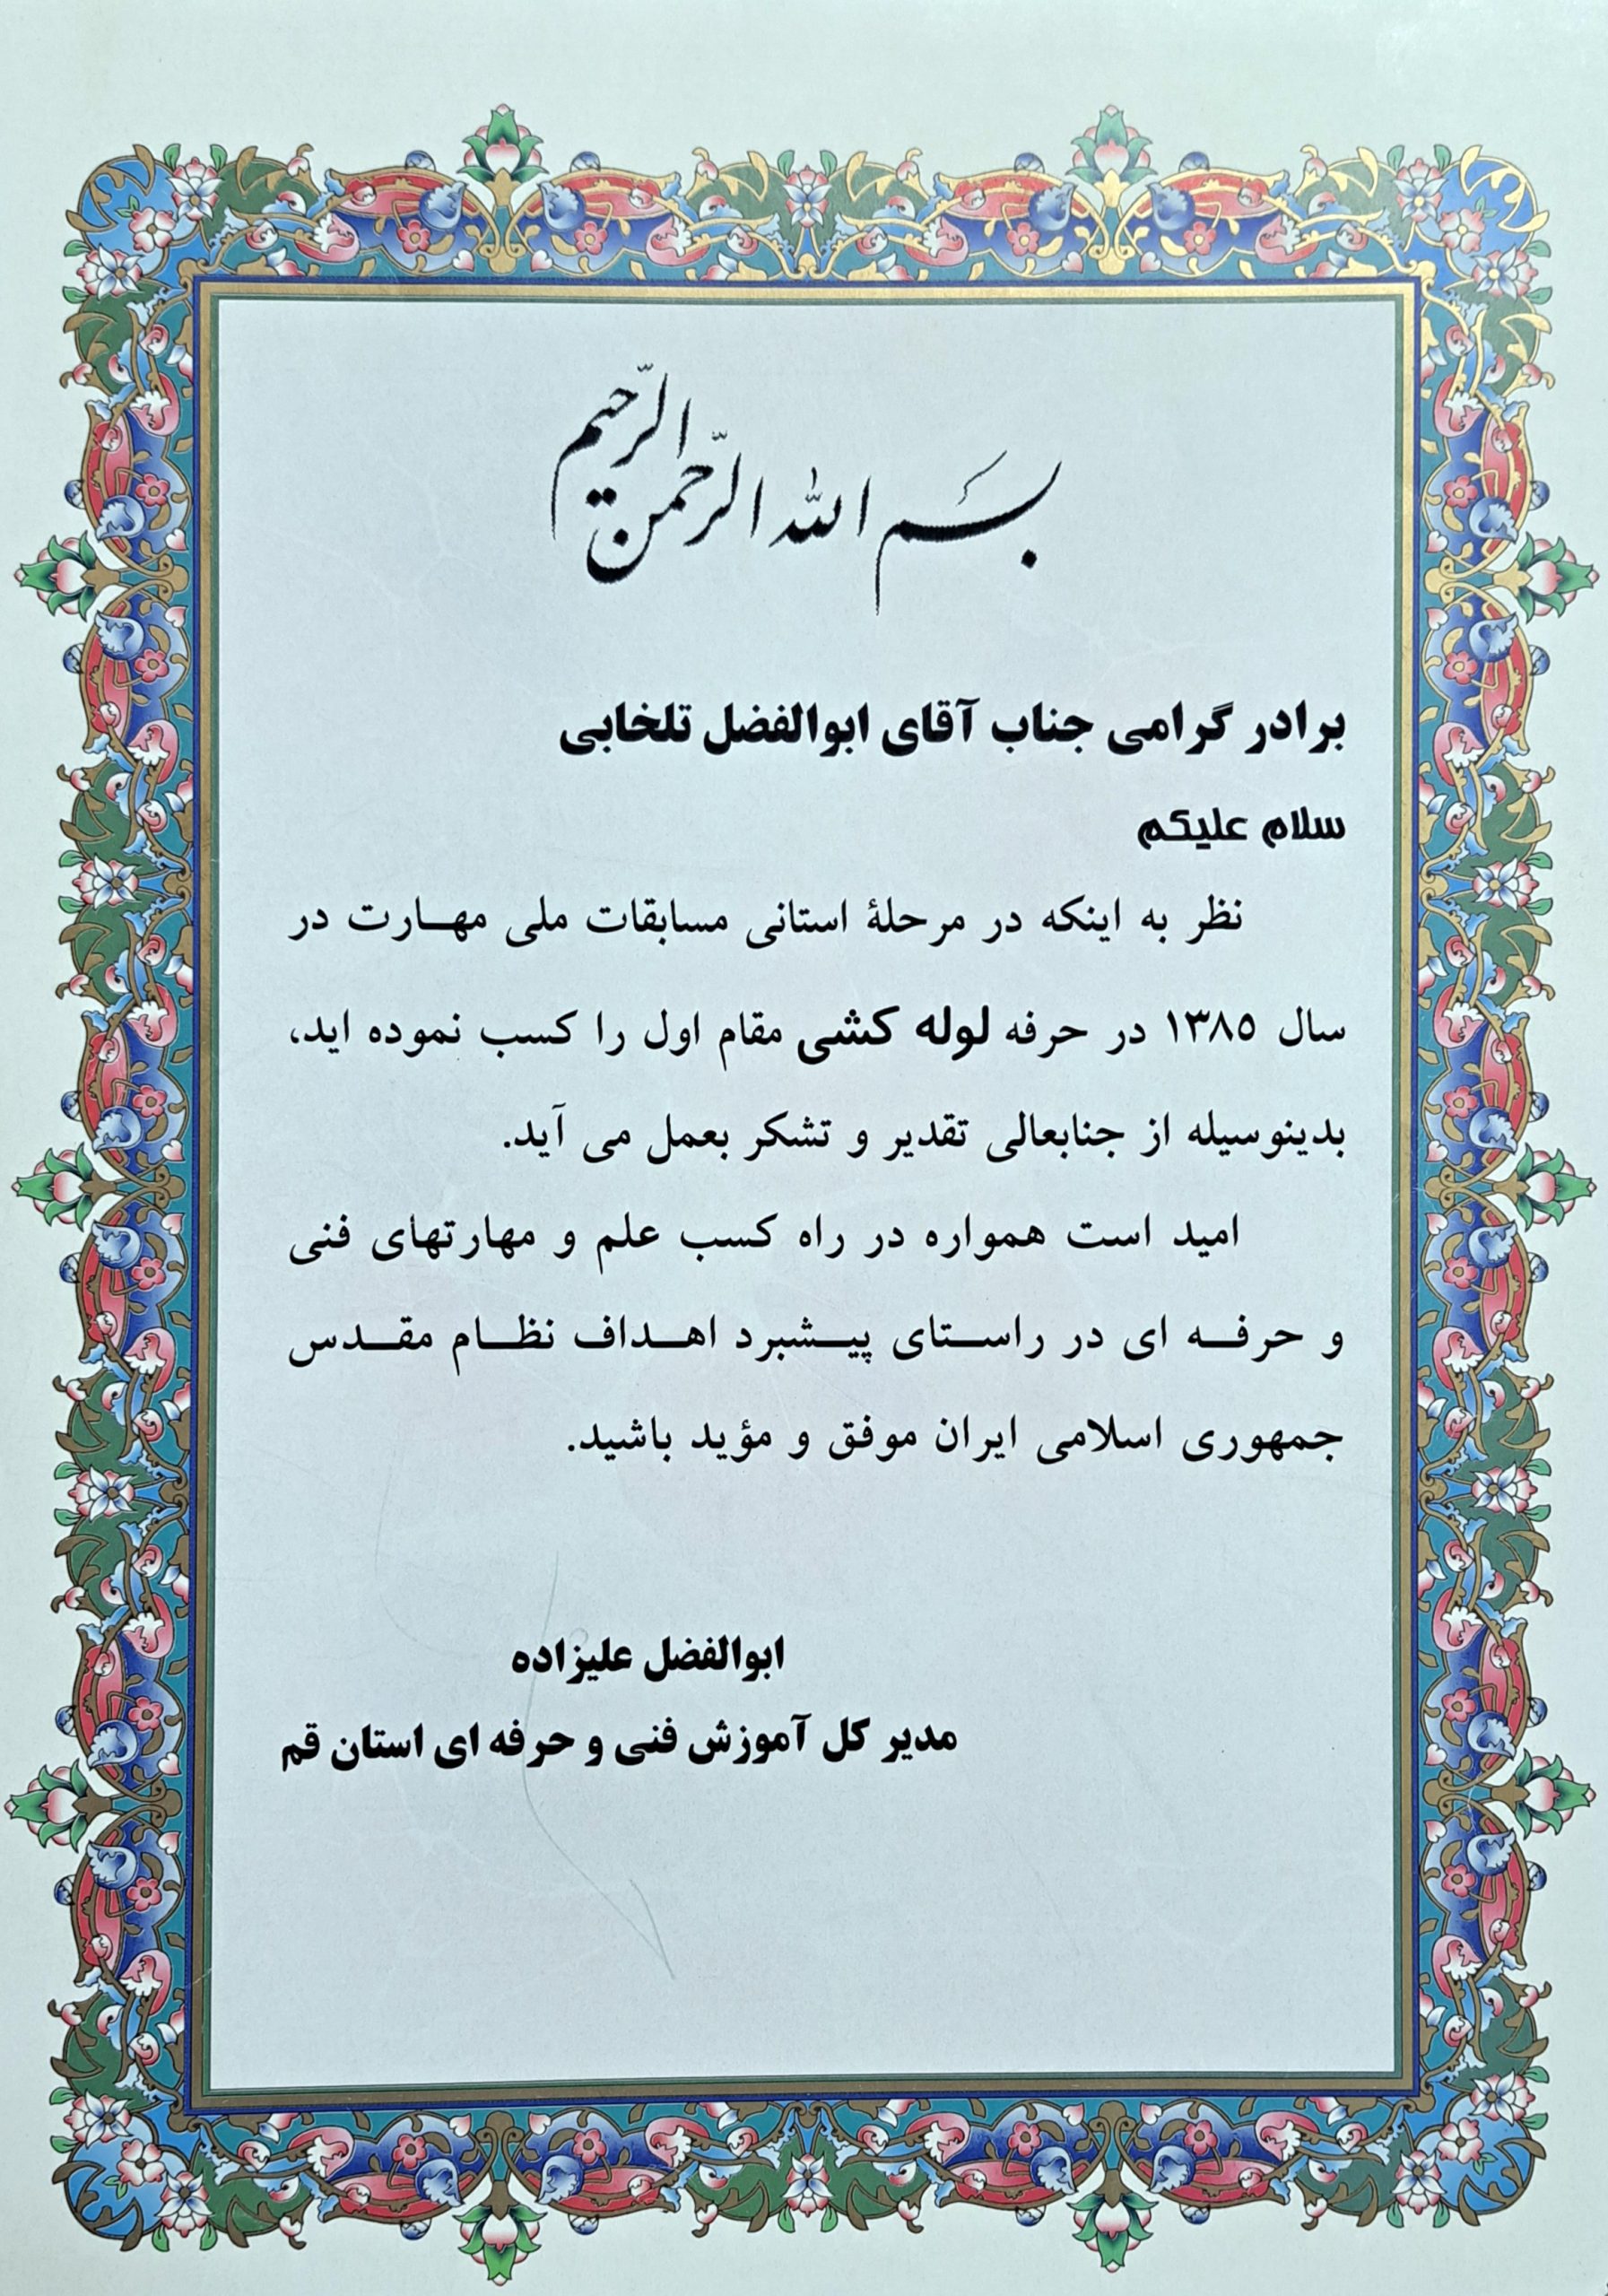 بسم الله الرحمن الرحیم
برادر گرامی جناب آقای ابوالفضل تلخابی
سلام علیکم
نظر به اینکه در مرحلهٔ استانی مسابقات ملی مهارت در
سال ۱۳۸۵ در حرفه لوله کشی مقام اول را کسب نموده اید،
بدینوسیله از جنابعالی تقدیر و تشکر بعمل می آید.
امید است همواره در راه کسب علم و مهارتهای فنی
و حرفه ای در راستای پیشبرد اهداف نظام مقدس
جمهوری اسلامی ایران موفق و مؤید باشید.
ابوالفضل علیزاده
مدیر کل آموزش فنی و حرفه ای استان قم